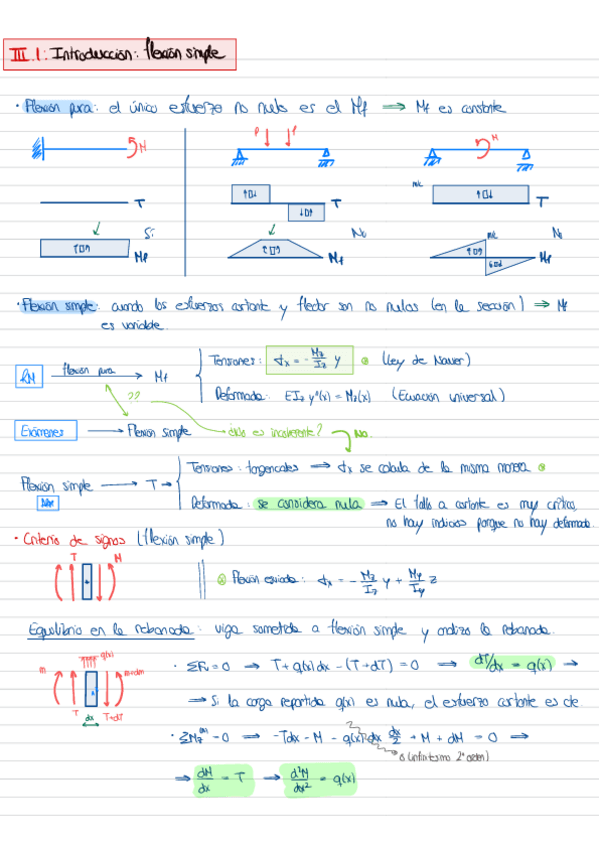 III.1: Introducción: flexión simple
· Flexión pura: el único esfuerzo no nulo es el Mf ⟹ Mf es constante
M
P P
M
T
T
T
Si
No
No
Mf
Mf
Mf
· Flexión simple: cuando los esfuerzos cortante y flector son no nulos (en la sección) ⟹ Mf
es variable.
RM flexión pura → Mf
Tensiones: σx = - Mz/Iz y (Ley de Navier)
Deformada: EIz y''(x) = Mz(x) (Ecuación universal)
??
Exámenes → Flexión simple ¿Esto es incoherente? No.
Flexión simple → T →
Tensiones: tangenciales ⟹ σx se calcula de la misma manera
Deformada: se considera nula ⟹ El fallo a cortante es muy crítico,
no hay indicios porque no hay deformada.
· Criterio de signos (flexión simple)
T M
Flexión esviada: σx = - Mz/Iz y + My/Iy z
Equilibrio en la rebanada: viga sometida a flexión simple y analizo la rebanada.
q(x)
m m+dm
T dx T+dT
· ΣFv = 0 ⟹ T + q(x)dx - (T+dT) = 0 ⟹ dT/dx = q(x) →
→ Si la carga repartida q(x) es nula, el esfuerzo cortante es cte.
· ΣMz = 0 ⟹ -Tdx - M - q(x) dx dx/2 + M + dM = 0 ⟹
0 (infinitésimo 2º orden)
⟹ dM/dx = T ⟹ d²M/dx² = q(x)